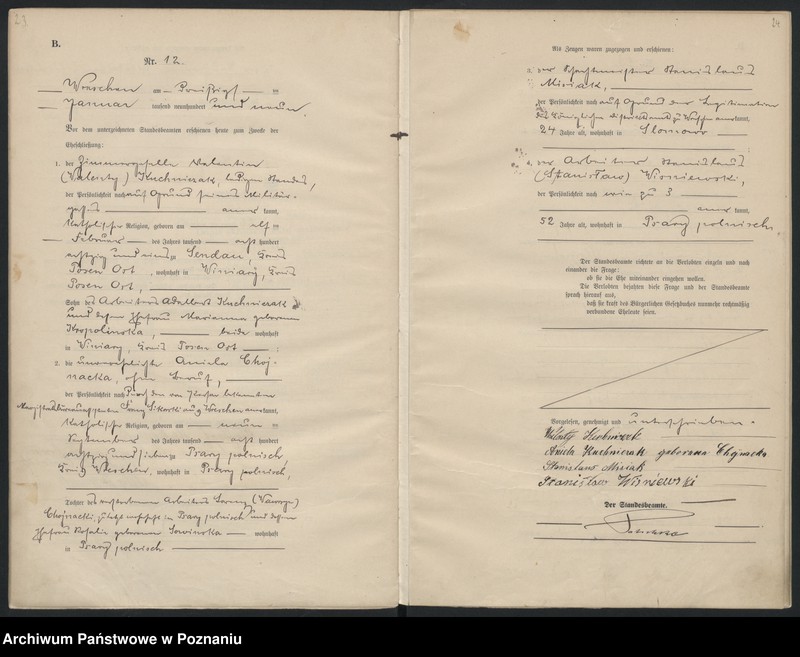 23
B.
Nr. 12.
Wreschen am dreißigsten
Januar tausend neunhundert und neun.
Vor dem unterzeichneten Standesbeamten erschienen heute zum Zwecke der
Eheschließung:
1. der Zimmergeselle Valentin
(Walenty) Kuchniczak, ledigen Standes,
der Persönlichkeit nach auf Grund seines Militär-
passes anerkannt,
katholischer Religion, geboren am elften
Februar des Jahres tausend acht hundert
achtzig und neun zu Sendau, Kreis
Posen Ost, wohnhaft in Winiary, Kreis
Posen Ost,
Sohn des Arbeiters Adalbert Kuchniczak
und dessen Ehefrau Marianna geborenen
Kropolinska, beide wohnhaft
in Winiary, Kreis Posen Ost
2. die unverehelichte Aniela Choj-
nacka, ohne Beruf,
der Persönlichkeit nach durch den von Person bekannten
Sikorski aus Wreschen anerkannt,
katholischer Religion, geboren am neunten
September des Jahres tausend acht hundert
achtzig und sieben zu Psary polnisch
Kreis Wreschen, wohnhaft in Psary polnisch,
Tochter des verstorbenen Arbeiters Lorenz (Wawrzyn)
Chojnacki, zuletzt wohnhaft in Psary polnisch und dessen
Ehefrau Rosalie geborenen Sowinska wohnhaft
in Psary polnisch
24
Als Zeugen waren zugezogen und erschienen:
3. der Schachtmeister Stanislaus
Misiak,
der Persönlichkeit nach auf Grund der Legitimation
des Königlichen Distriktsamts zu Wreschen anerkannt,
24 Jahre alt, wohnhaft in Slomowo
4. der Arbeiter Stanislaus
(Stanisław) Wisniewski,
der Persönlichkeit nach wie zu 3
anerkannt,
52 Jahre alt, wohnhaft in Psary polnisch.
Der Standesbeamte richtete an die Verlobten einzeln und nach
einander die Frage:
ob sie die Ehe miteinander eingehen wollen.
Die Verlobten bejahten diese Frage und der Standesbeamte
sprach hierauf aus,
daß sie kraft des Bürgerlichen Gesetzbuches nunmehr rechtmäßig
verbundene Eheleute seien.
Vorgelesen, genehmigt und unterschrieben.
Walenty Kuchniczak
Aniela Kuchniczak geborena Chojnacka
Stanislaw Misiak
Stanisław Wiśniewski
Der Standesbeamte.
Archiwum Państwowe w Poznaniu